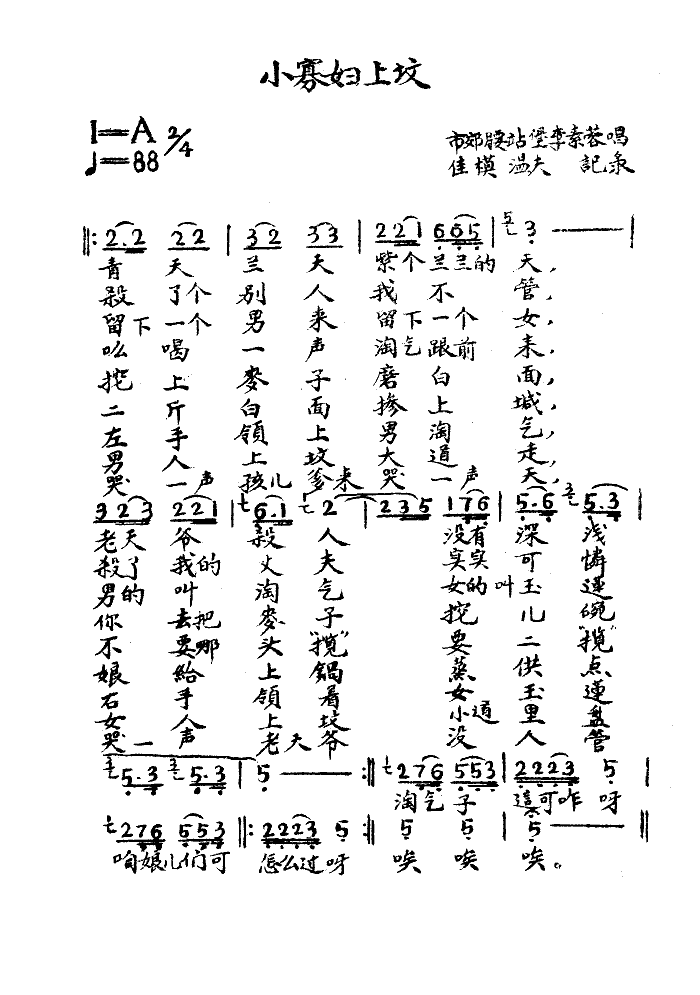 小寡妇上坟
1=A 2/4
♩=88
市郊腰站堡李素蓉唱
佳模 温夫 記录
‖: 2·2 2 2 | 3 2 3 3 | 2 2 1 6 6 5 | 3 — |
青天 兰天 紫个兰兰的 天,
殺了个 别人 我不 管,
留下一个 男来 留下一个 女,
吆喝 一声 淘气跟前 来,
挖上 麥子 磨白 面,
二斤 白面 掺上 堿,
左手 領上 男淘 气,
男人 上坟 大道 走,
哭一声 孩儿爹来 哭一声 天,
3 2 3 2 2 1 | 6·1 2 | 2 3 5 1 7 6 | 5·6 5·3 |
老天爷 殺人 没有深浅
殺了我的 丈夫 实实可憐
男的叫 淘气 女的叫玉莲
你去把 麥子 挖儿碗
不要哪 头"揽" 要二"揽"
娘給 上鍋 蒸供点
右手 領着 女玉莲
女人 上坟 小道里盘
哭一声 老天爷 没人管
5·3 5·3 | 5 — :‖ 2 7 6 5 5 3 | 2 2 2 3 5 |
淘气子 這可咋呀
2 7 6 5 5 3 ‖: 2 2 2 3 5 :‖ 5 5 | 5 — ‖
咱娘儿们可 怎么过呀 唉 唉 唉。